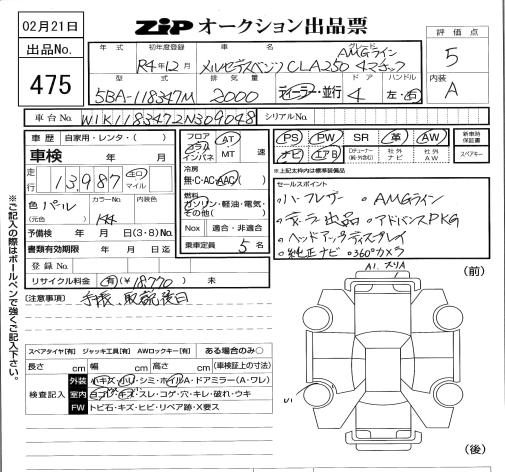 02月21日
ZIP オークション出品票
出品No.
475
年式
初年度登録 R4年12月
車名 メルセデスベンツ CLA250 4マチック
グレード AMGライン
評価点 5
型式 5BA-118347M
排気量 2000
ディーラー・並行
ドア 4
ハンドル 左・右
内装 A
車台No. W1K1183472N309048
シリアルNo.
車歴 自家用・レンタ・( )
車検 年 月
走行 13,987 キロ マイル
色 (元色) パール
カラーNo.
内装色
予備検 年 月 日(3・8)No.
書類有効期限 年 月 日迄
登録No.
リサイクル料金 有(¥18770) 未
フロア コラム インパネ
AT MT 速
冷房 無・C・AC・AAC
燃料 ガソリン・軽油・電気・その他( )
Nox 適合・非適合
乗車定員 5 名
PS PW SR 革 AW
ナビ エアB Dチューナー(純・外含む) 社外ナビ 社外AW
新車時保証書
スペアキー
※上記太枠内は標準装備品
セールスポイント
・ハーフレザー ・AMGライン
・ディーラー出品 ・アドバンスPKG
・ヘッドアップディスプレイ
・純正ナビ ・360°カメラ
[注意事項] 手帳、取説後日
※ご記入の際はボールペンで強くご記入下さい。
スペアタイヤ[有] ジャッキ工具[有] AWロックキー[有] ある場合のみ○
長さ cm 幅 cm 高さ cm (車検証上の寸法)
検査記入
外装 小キズ・小凹・シミ・ホイルA・ドアミラー(A・ワレ)
室内 汚れ・キズ・スレ・コゲ・穴・キレ・破れ・ウキ
FW トビ石・キズ・ヒビ・リペア跡・X要ス
A1. スリA
(前)
(後)